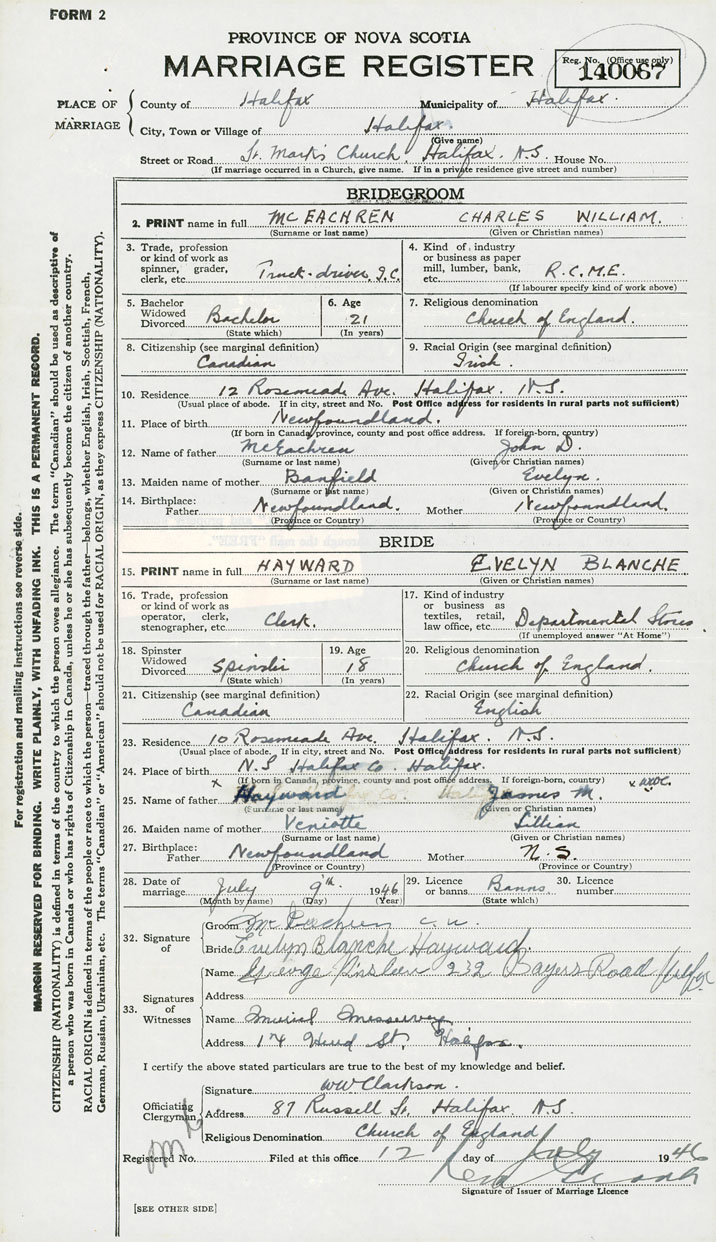 FORM 2
PROVINCE OF NOVA SCOTIA
MARRIAGE REGISTER
Reg. No. (Office use only)
140067
PLACE OF MARRIAGE
County of Halifax Municipality of Halifax.
City, Town or Village of Halifax.
(Give name)
Street or Road St. Mark's Church, Halifax. N.S. House No.
(If marriage occurred in a Church, give name. If in a private residence give street and number)
BRIDEGROOM
2. PRINT name in full MCEACHREN CHARLES WILLIAM.
(Surname or last name) (Given or Christian names)
3. Trade, profession or kind of work as spinner, grader, clerk, etc. Truck-driver, I.C.
4. Kind of industry or business as paper mill, lumber, bank, etc. R.C.M.E.
(If labourer specify kind of work above)
5. Bachelor Widowed Divorced Bachelor
(State which)
6. Age 21
(In years)
7. Religious denomination
Church of England.
8. Citizenship (see marginal definition)
Canadian
9. Racial Origin (see marginal definition)
Irish.
10. Residence 12 Rosemeade Ave. Halifax. N.S.
(Usual place of abode. If in city, street and No. Post Office address for residents in rural parts not sufficient)
11. Place of birth Newfoundland.
(If born in Canada, province, county and post office address. If foreign-born, country)
12. Name of father McEachren John D.
(Surname or last name) (Given or Christian names)
13. Maiden name of mother Banfield Evelyn.
(Surname or last name) (Given or Christian names)
14. Birthplace: Father Newfoundland. Mother Newfoundland.
(Province or Country) (Province or Country)
BRIDE
15. PRINT name in full HAYWARD EVELYN BLANCHE
(Surname or last name) (Given or Christian names)
16. Trade, profession or kind of work as operator, clerk, stenographer, etc. Clerk.
17. Kind of industry or business as textiles, retail, law office, etc. Departmental Stores
(If unemployed answer "At Home")
18. Spinster Widowed Divorced Spinster
(State which)
19. Age 18
(In years)
20. Religious denomination
Church of England.
21. Citizenship (see marginal definition)
Canadian
22. Racial Origin (see marginal definition)
English
23. Residence 10 Rosemeade Ave. Halifax. N.S.
(Usual place of abode. If in city, street and No. Post Office address for residents in rural parts not sufficient)
24. Place of birth N.S Halifax Co. Halifax.
(If born in Canada, province, county and post office address. If foreign-born, country)
25. Name of father Hayward James M.
(Surname or last name) (Given or Christian names)
26. Maiden name of mother Veniotte Lillian
(Surname or last name) (Given or Christian names)
27. Birthplace: Father Newfoundland Mother N.S.
(Province or Country) (Province or Country)
28. Date of marriage July 9th 1946
(Month by name) (Day) (Year)
29. Licence or banns Banns
(State which)
30. Licence number
32. Signature of
Groom McEachren C.W.
Bride Evelyn Blanche Hayward.
33. Signatures of Witnesses
Name George 232 Bayers Road
Address
Name Muriel Messervey
Address 174 St. Halifax.
I certify the above stated particulars are true to the best of my knowledge and belief.
Officiating Clergyman
Signature WW Clarkson.
Address 87 Russell St. Halifax N.S.
Religious Denomination Church of England
Registered No. Filed at this office 12 day of July 1946
Signature of Issuer of Marriage Licence
[SEE OTHER SIDE]
For registration and mailing instructions see reverse side.
MARGIN RESERVED FOR BINDING. WRITE PLAINLY, WITH UNFADING INK. THIS IS A PERMANENT RECORD.
CITIZENSHIP (NATIONALITY) is defined in terms of the country to which the person owes allegiance. The term "Canadian" should be used as descriptive of
a person who was born in Canada or who has rights of Citizenship in Canada, unless he or she has subsequently become the citizen of another country.
RACIAL ORIGIN is defined in terms of the people or race to which the person—traced through the father—belongs, whether English, Irish, Scottish, French,
German, Russian, Ukrainian, etc. The terms "Canadian" or "American" should not be used for RACIAL ORIGIN, as they express CITIZENSHIP (NATIONALITY).